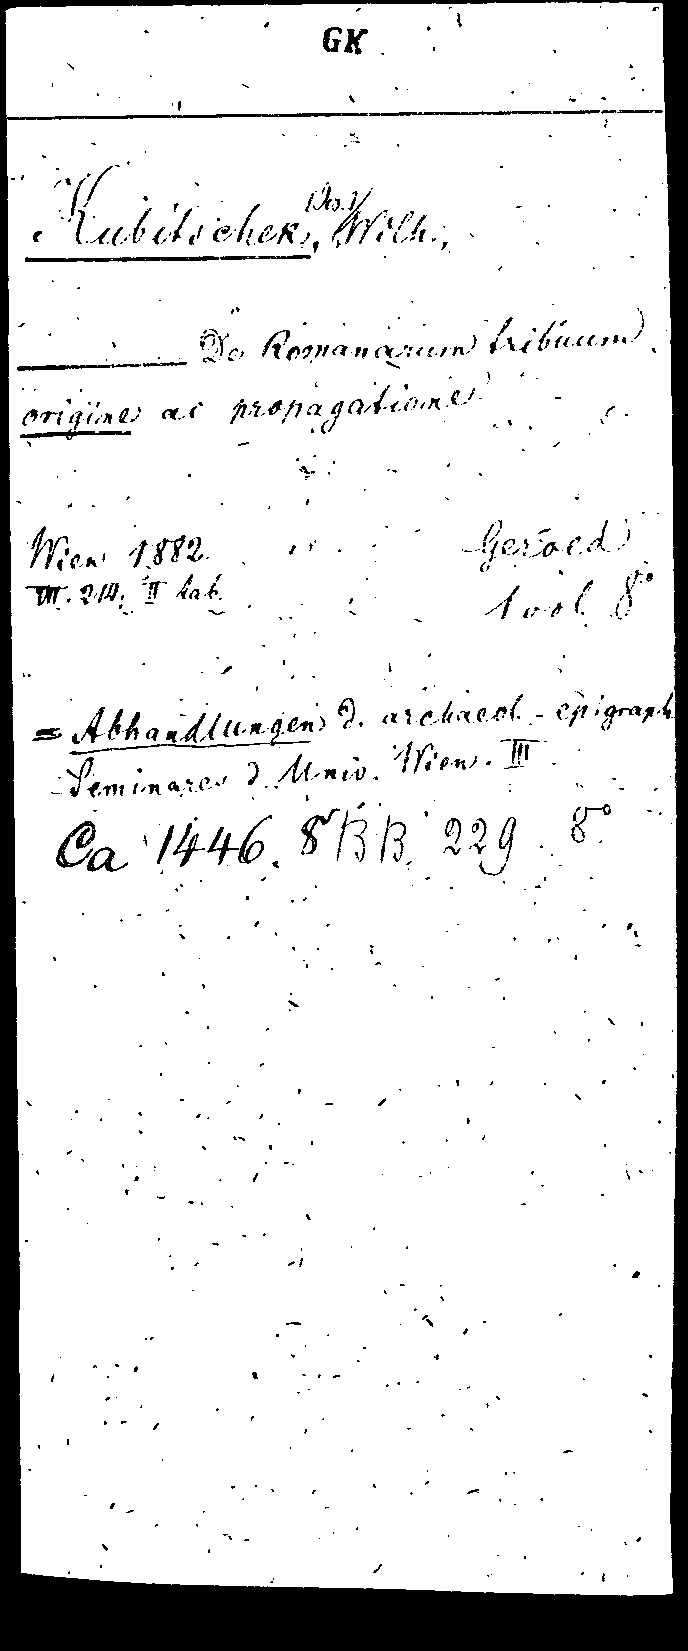 GK
Kubitschek, (Jos.) Wilh.,
De Romanarum tribuum
origine ac propagatione
Wien 1882. Gerold
VIII. 214. II tab. 1 vol. 8°
= Abhandlungen d. archaeol.-epigraph
Seminares d. Univ. Wien. III
Ca 1446. 8° BB. 229. 8°